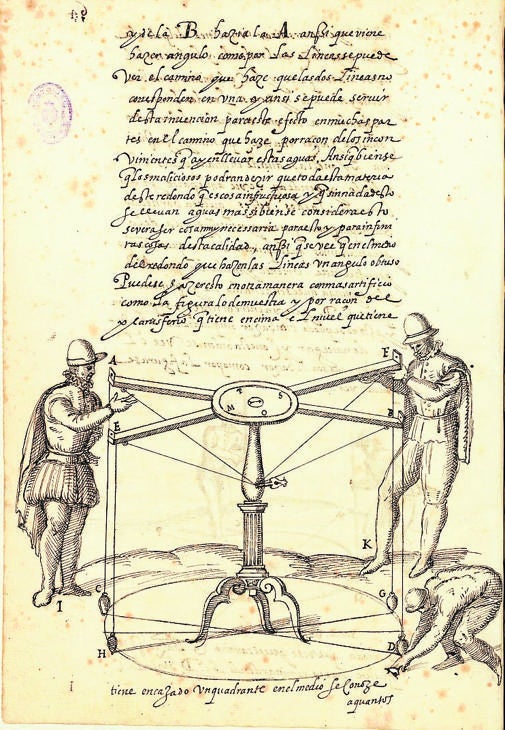 y de la B hazia la A anssi que viene
hazer angulo como par las lineas se puede
ver el camino que haze que las dos lineas no
corresponden en vna y ansi se puede seruir
desta inuencion para este efecto en muchas par
tes en el camino que haze por raçon de los incon
vinientes q̃ ay en lleuar estas aguas. Ansi q̃ biense
q̃ los maliciosos podran dezir que toda esta materia
deste redondo q̃ es cosa infructuosa y q̃ sin nada desto
se lleuan aguas mas si bien se considera esto
severa ser cosa muy necessaria para esto y para infini
tas cosas desta calidad, anssi q̃ se vee q̃ en el medio
del redondo que hazen las lineas vn angulo obtuso
Puedese hazer esto en otra manera con mas artificio
como la figura lo demuestra y por raçon del
q̃ tiene encima el niuel que tiene
A
F
M
T
S
O
E
B
K
C
G
I
H
D
tiene encaxado vn quadrante en el medio se conoze
aquantos